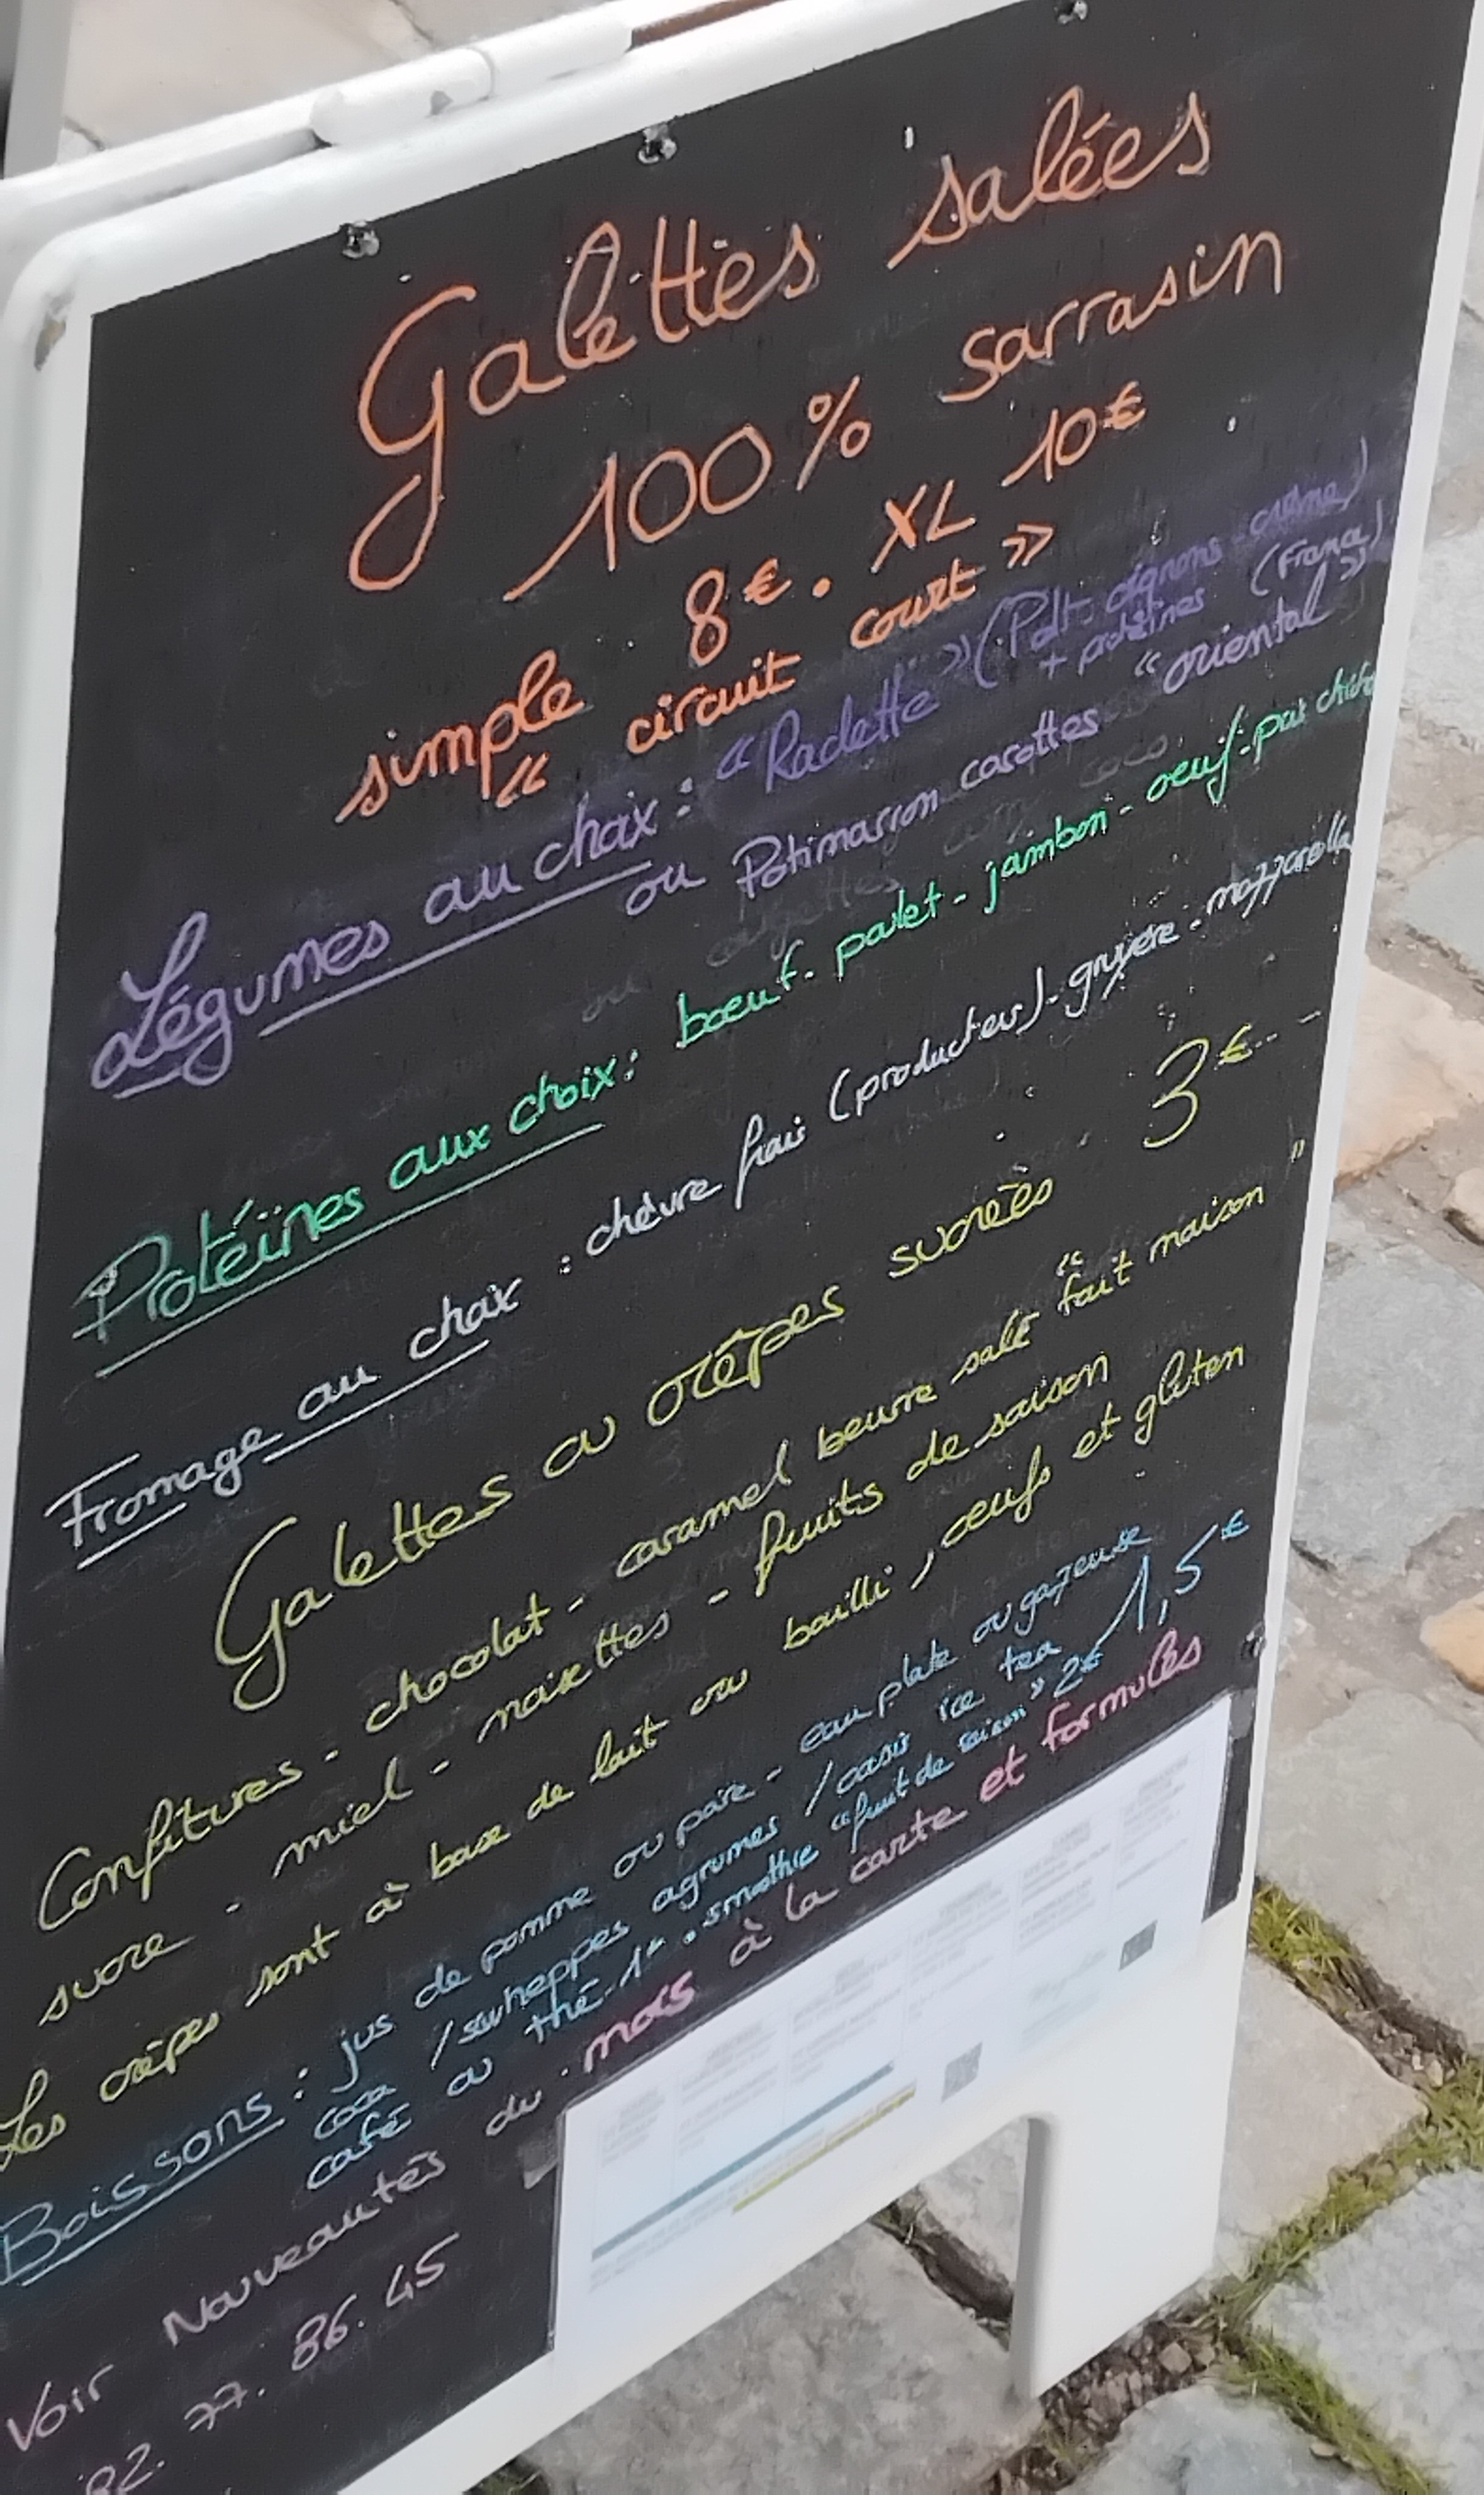 Galettes salées
100% sarrasin
simple 8€. XL 10€
« circuit court »
Légumes au choix : « Raclette » (Pdt. oignons - crème)
+ protéines (France)
ou Potimarron carottes "oriental"
ou courgettes curry coco.
Protéines aux choix : boeuf - poulet - jambon - oeuf - pois chiche
Fromage au choix : chèvre frais (producteur) - gruyère - mozzarella
Galettes ou crêpes sucrées 3€
Confitures - chocolat - caramel beurre salé "fait maison"
sucre - miel - noisettes - fruits de saison
Les crêpes sont à base de lait ou bailli, oeufs et gluten
Boissons : jus de pomme ou poire - eau plate ou gazeuse
coca / schweppes agrumes / oasis ice tea 1,5€
café ou thé 1€. smoothie "fruit de saison" 2€
Voir Nouveautés du mois à la carte et formules
82. 77. 86. 45